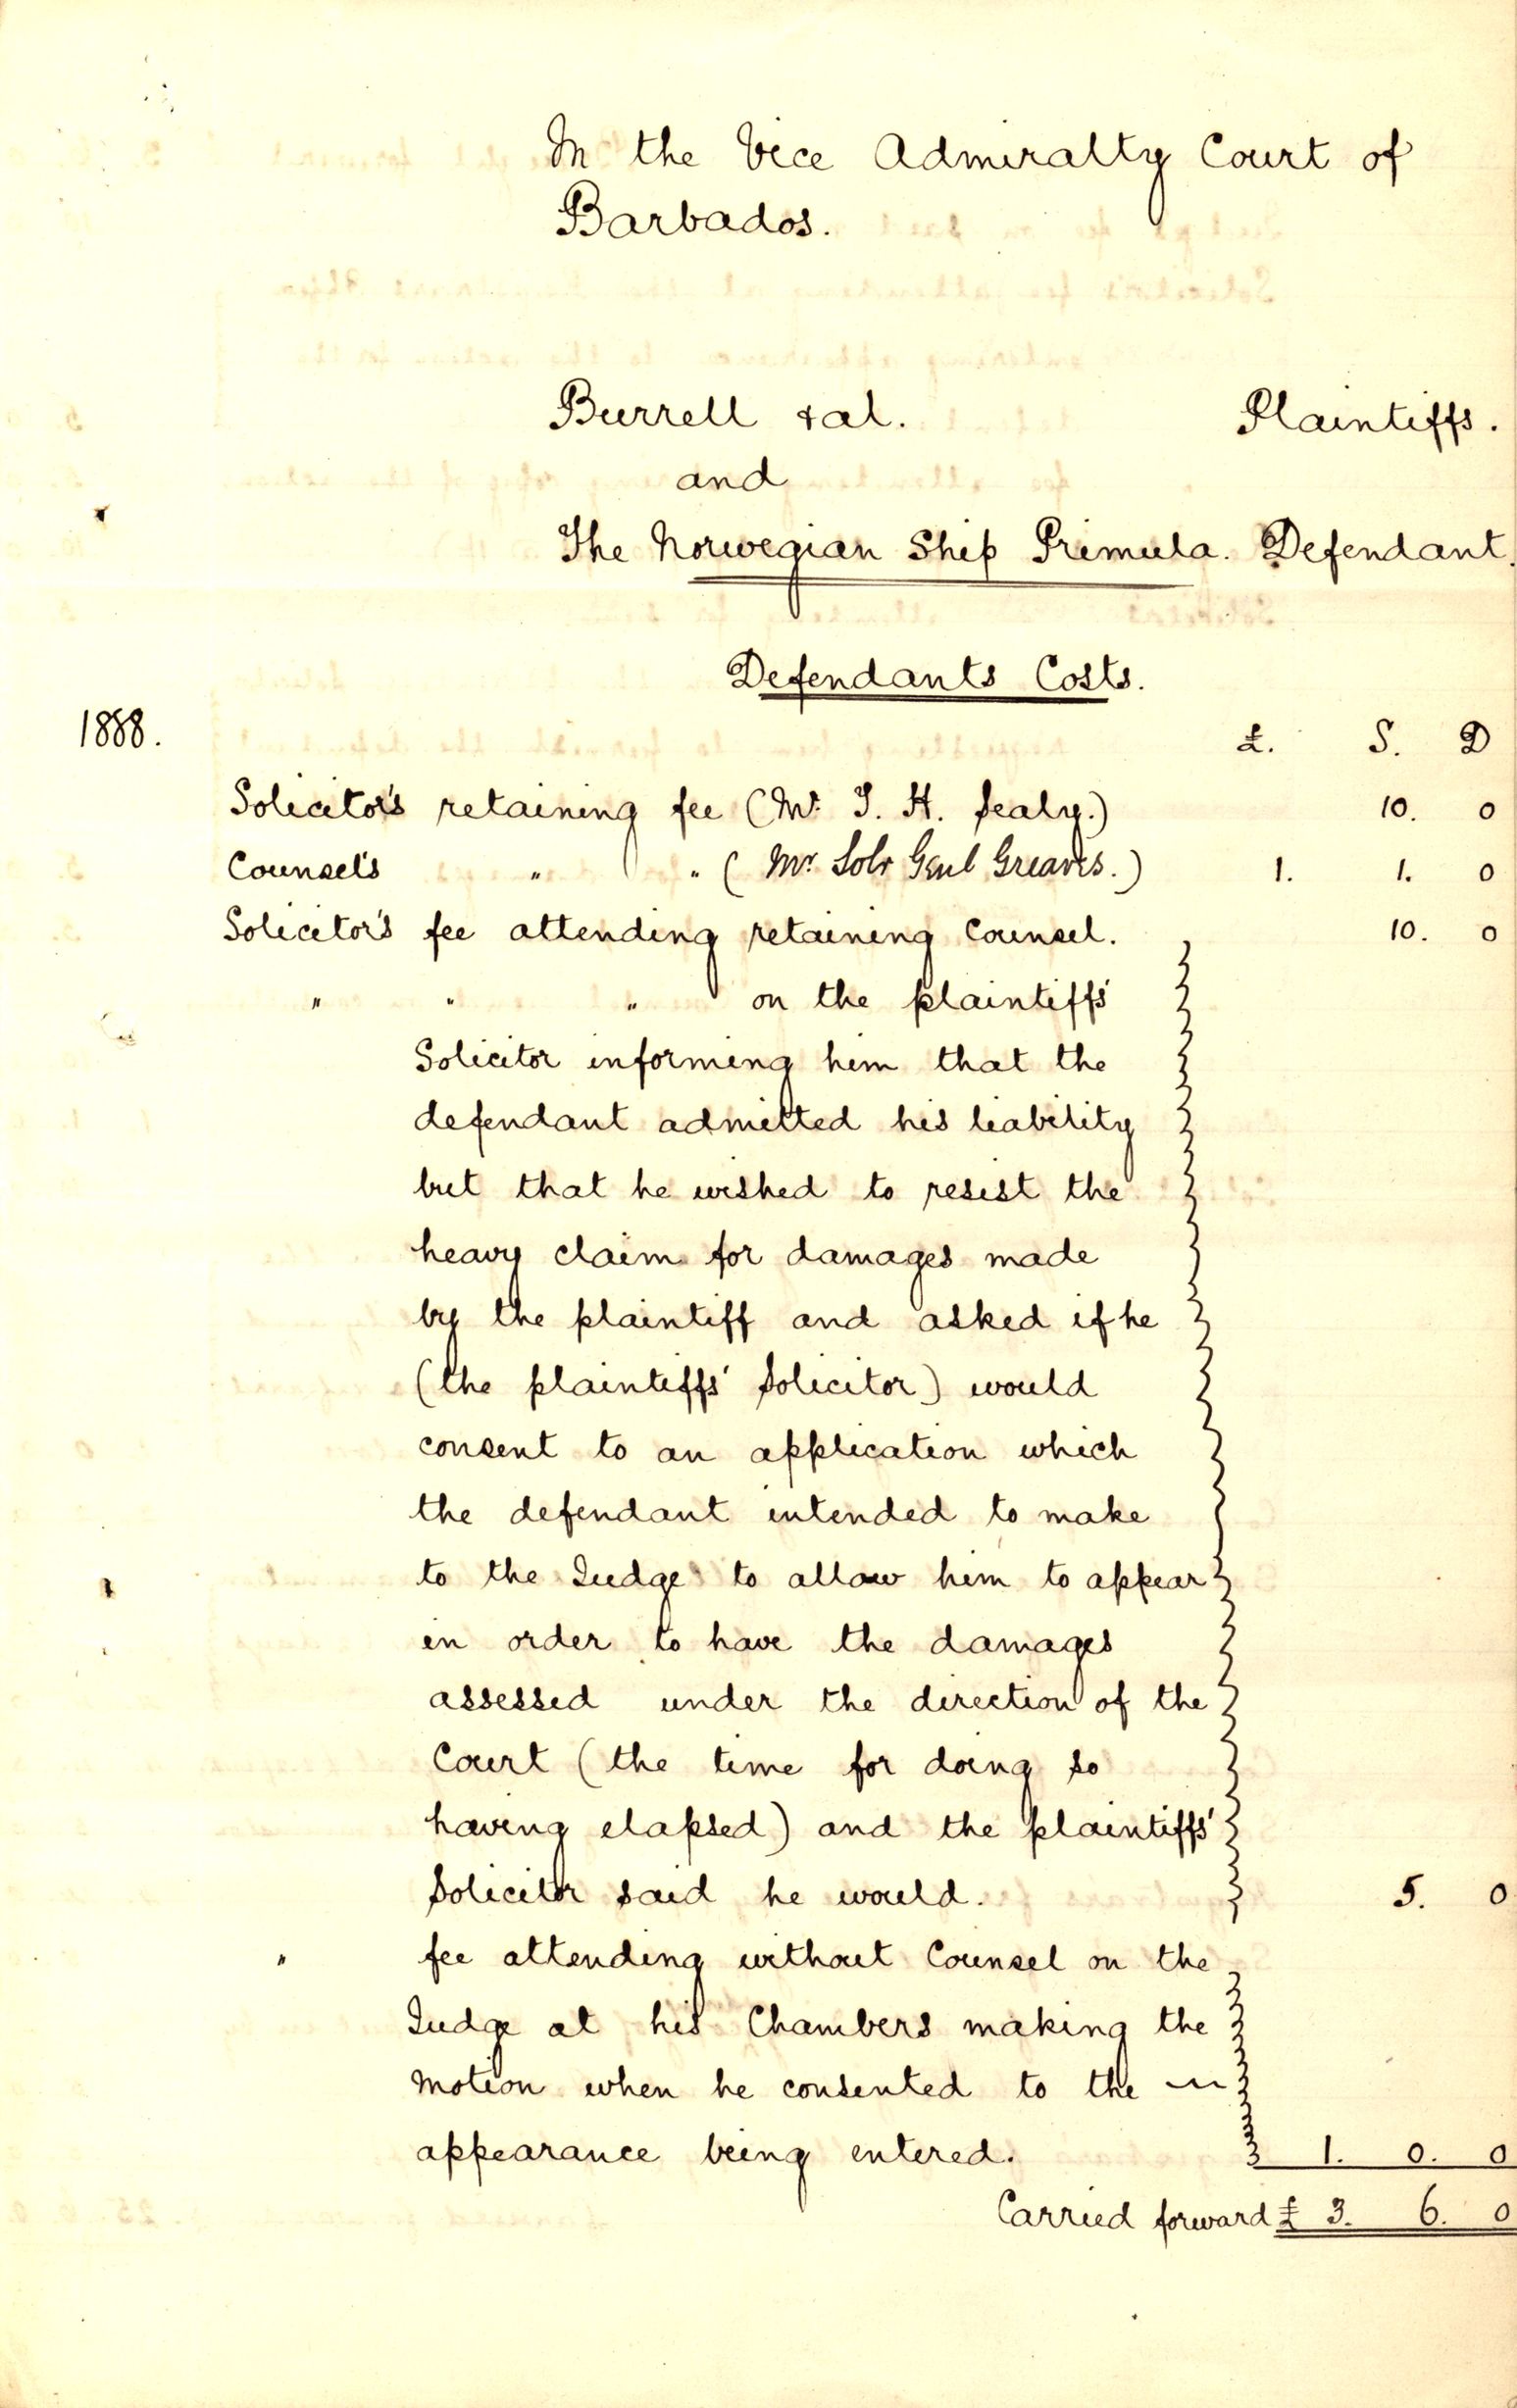 In the Vice Admiralty Court of
Barbados.
Burrell & al. Plaintiffs.
and
The Norwegian Ship Primula. Defendant.
Defendants Costs.
1888. £. S. D
Solicitor's retaining fee (Mr. J. H. Sealy.) 10. 0
Counsel's " " (Mr. Solr Genl Greaves.) 1. 1. 0
Solicitor's fee attending retaining Counsel. 10. 0
" " " on the plaintiffs'
Solicitor informing him that the
defendant admitted his liability
but that he wished to resist the
heavy claim for damages made
by the plaintiff and asked if he
(the plaintiffs' Solicitor) would
consent to an application which
the defendant intended to make
to the Judge to allow him to appear
in order to have the damages
assessed under the direction of the
Court (the time for doing so
having elapsed) and the plaintiffs'
Solicitor said he would. 5. 0
" fee attending without Counsel on the
Judge at his Chambers making the
motion when he consented to the
appearance being entered. 1. 0. 0
Carried forward £ 3. 6. 0